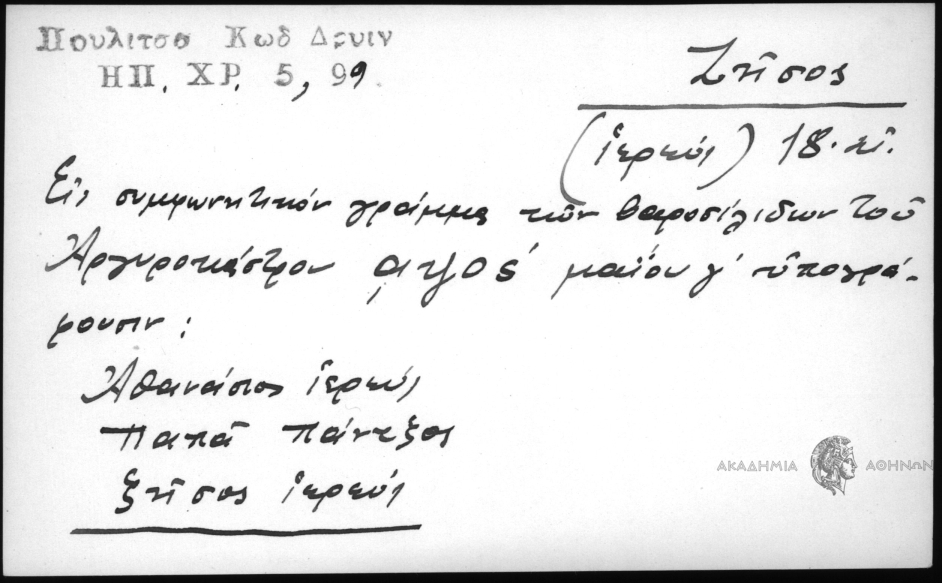 Πουλιτσα Κωδ Δρυιν
ΗΠ. ΧΡ. 5, 99.
Ζῆσος
(ἱερεύς) 18. αἰ.
Εἰς συμφωνητικόν γράμμα τῶν βαροσιλιδων τοῦ
Ἀργυροκάστρου αψος΄ μαΐου γ΄ ὑπογρά-
φουσιν:
Ἀθανάσιος ἱερεύς
παπᾶ Πάντζος
ζῆσος ἱερεύς
ΑΚΑΔΗΜΙΑ ΑΘΗΝΩΝ